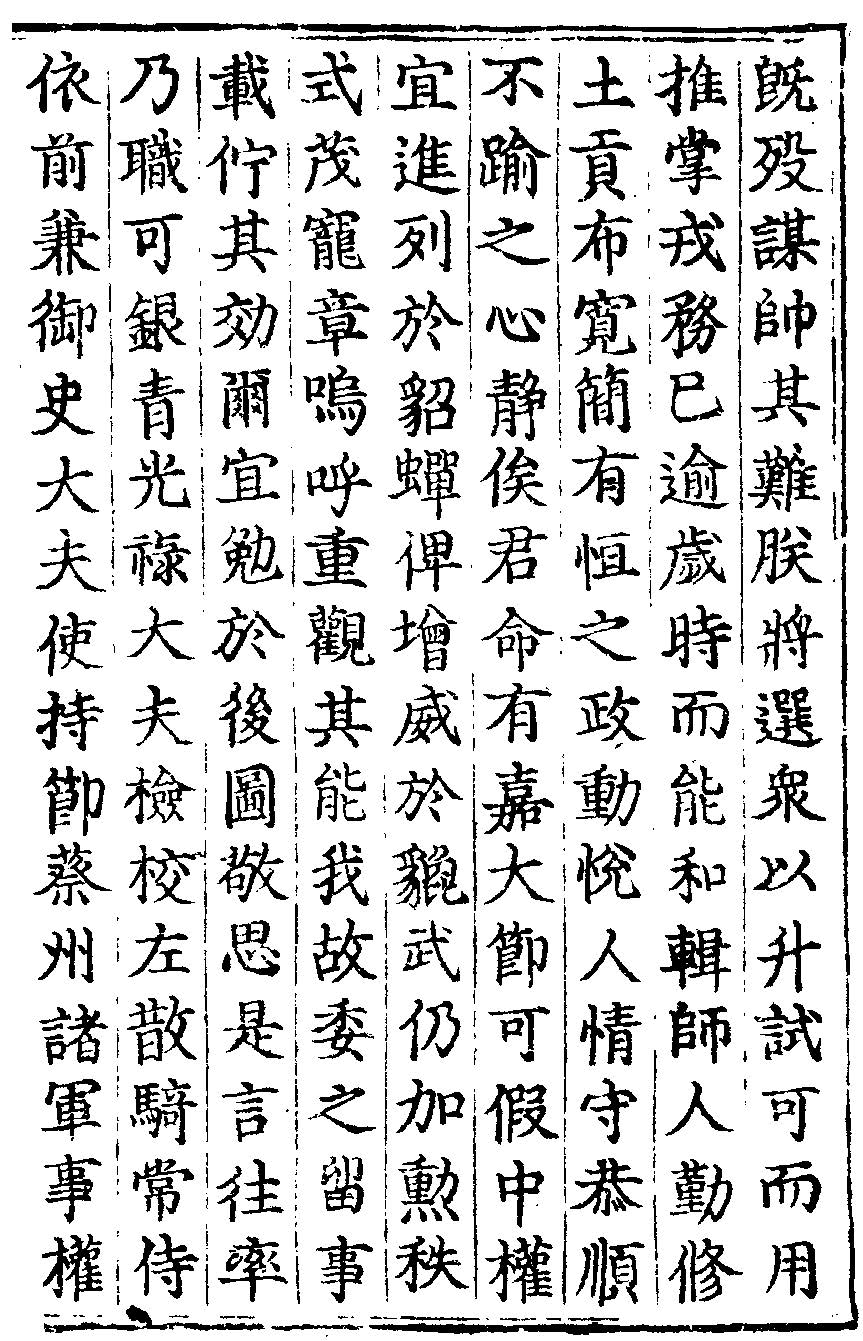 旣殁謀帥其難朕將選衆以升試可而用
推掌戎務已逾歲時而能和輯師人勤修
土貢布寛簡有恒之政動恱人情守恭順
不踰之心静俟君命有嘉大節可假中權
宜進列於貂蟬俾增威於貔武仍加勲秩
式茂寵章嗚呼重觀其能我故委之留事
載佇其効爾宜勉於後圖敬思是言往率
乃職可銀青光禄大夫檢校左散騎常侍
依前兼御史大夫使持節蔡州諸軍事權